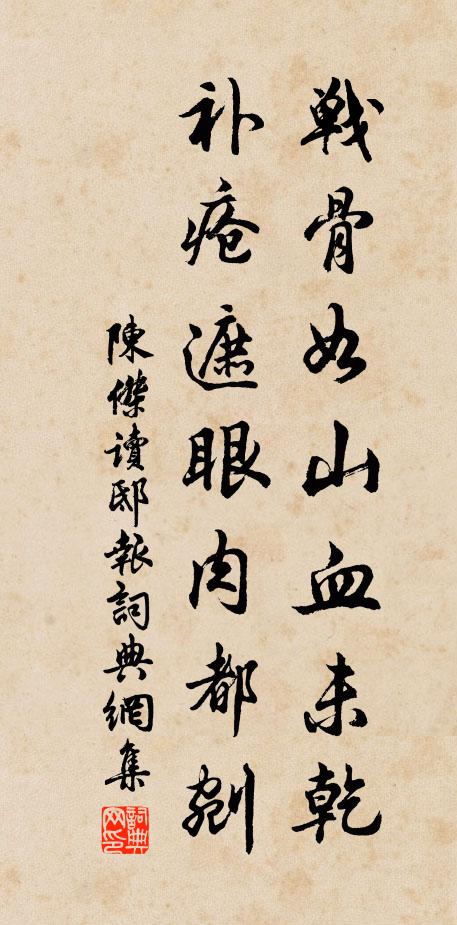 戰骨如山血未乾
补瘡遮眼肉都剜
陳傑讀邸報詞典網集
詞典网印